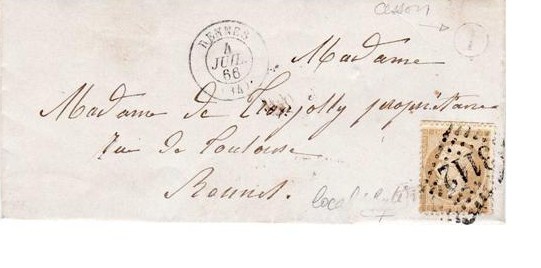 Cesson
I
RENNES
4
JUIL.
66
(34)
Madame
Madame de Tronjolly propriétaire
rue de Toulouse
Rennes.
local
3112